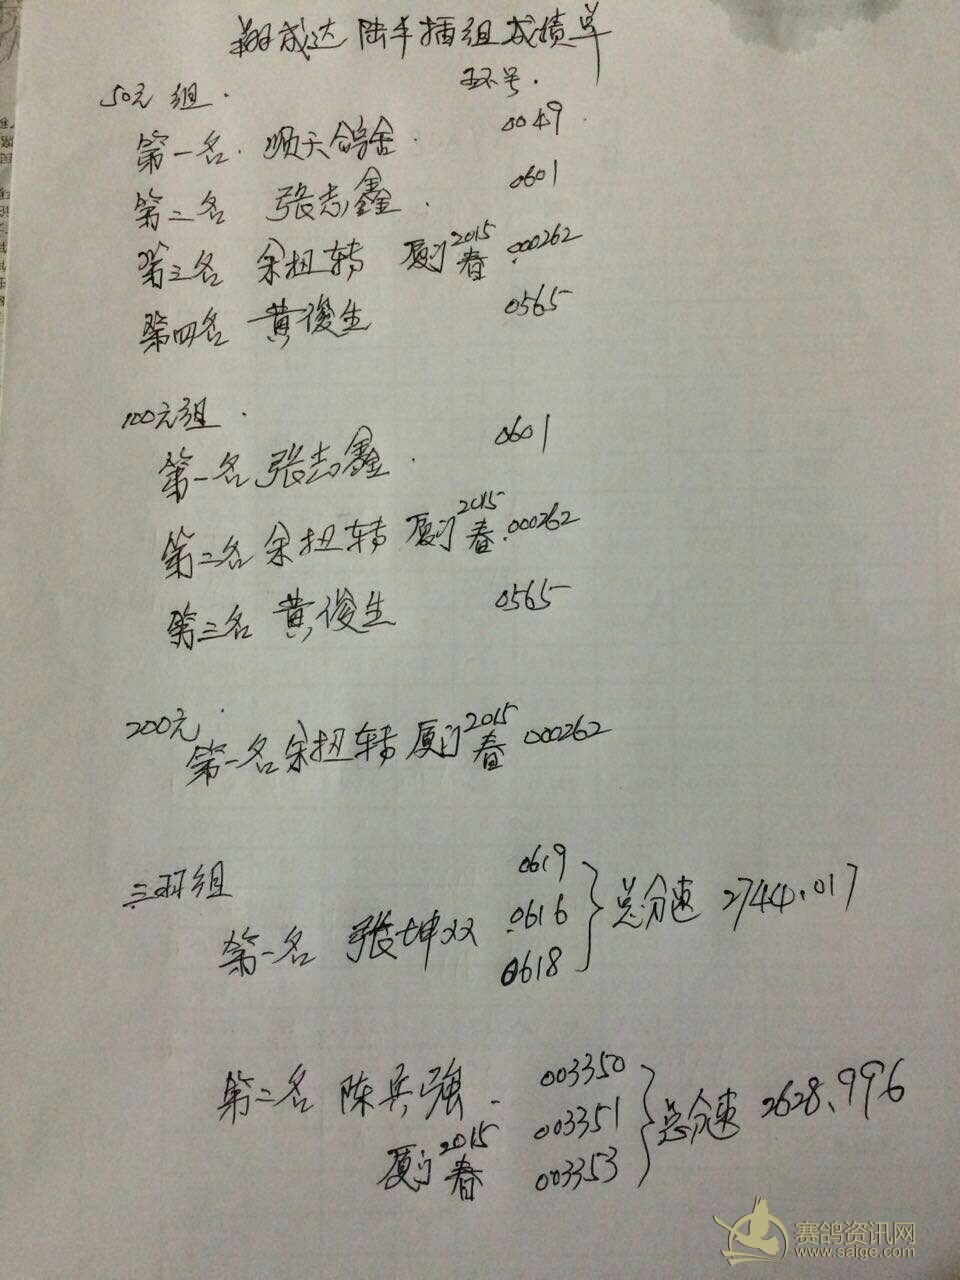 翔成达陆丰插组成绩单
环号.
50元组.
第一名. 顺天鸽舍. 0049
第二名 张志鑫. 0601
第三名 余扭转 厦门2015春.000262
第四名 黄俊生 0565
100元组.
第一名 张志鑫. 0601
第二名 余扭转 厦门2015春.000262
第三名 黄俊生 0565
200元.
第一名 余扭转 厦门2015春 000262
三羽组
0619
第一名 张坤双 0616 总分速 2744.017
0618
第二名 陈兵强. 003350
厦门2015春 003351 总分速 2628.996
003353
赛鸽资讯网
www.saige.com